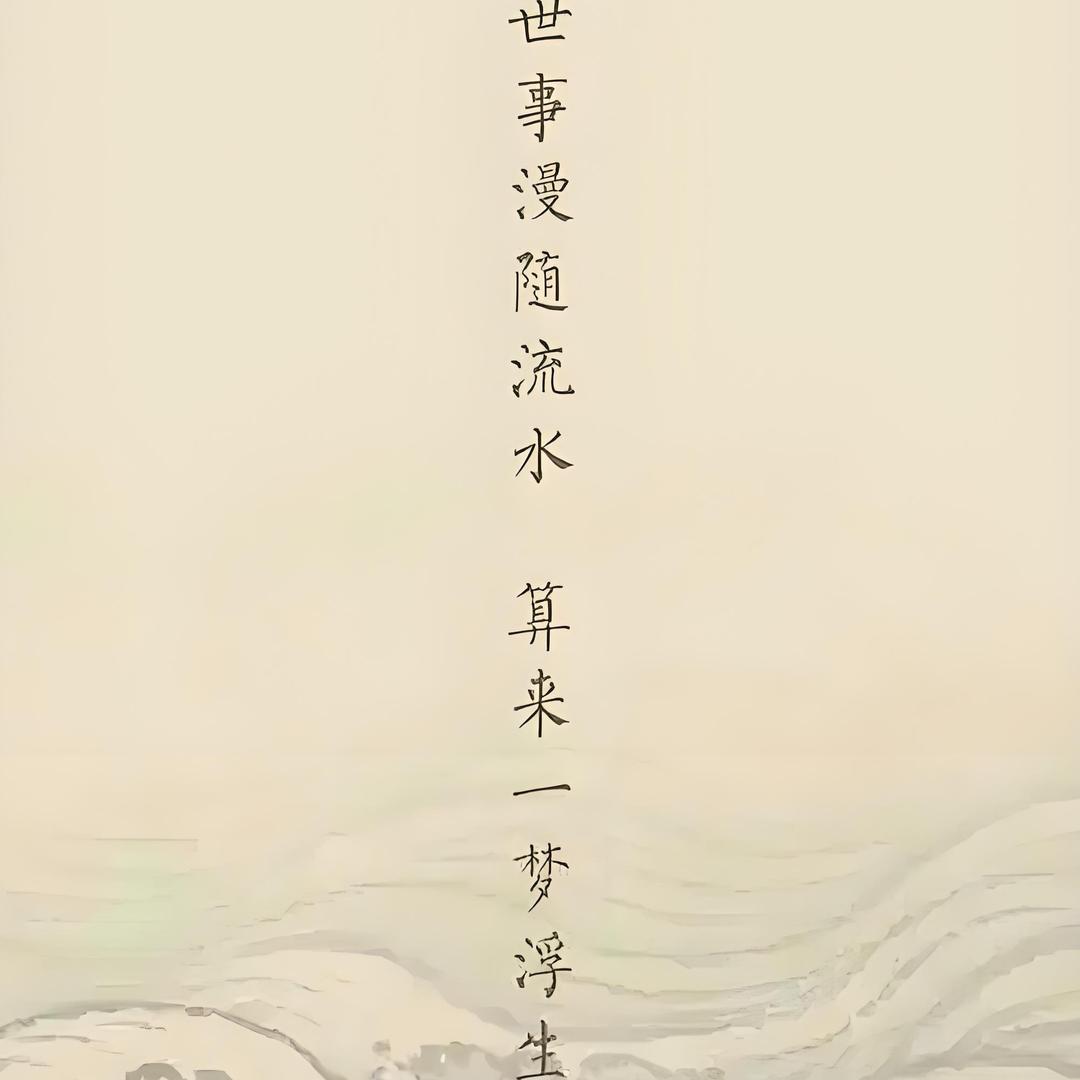 世事漫随流水 算来一梦浮生